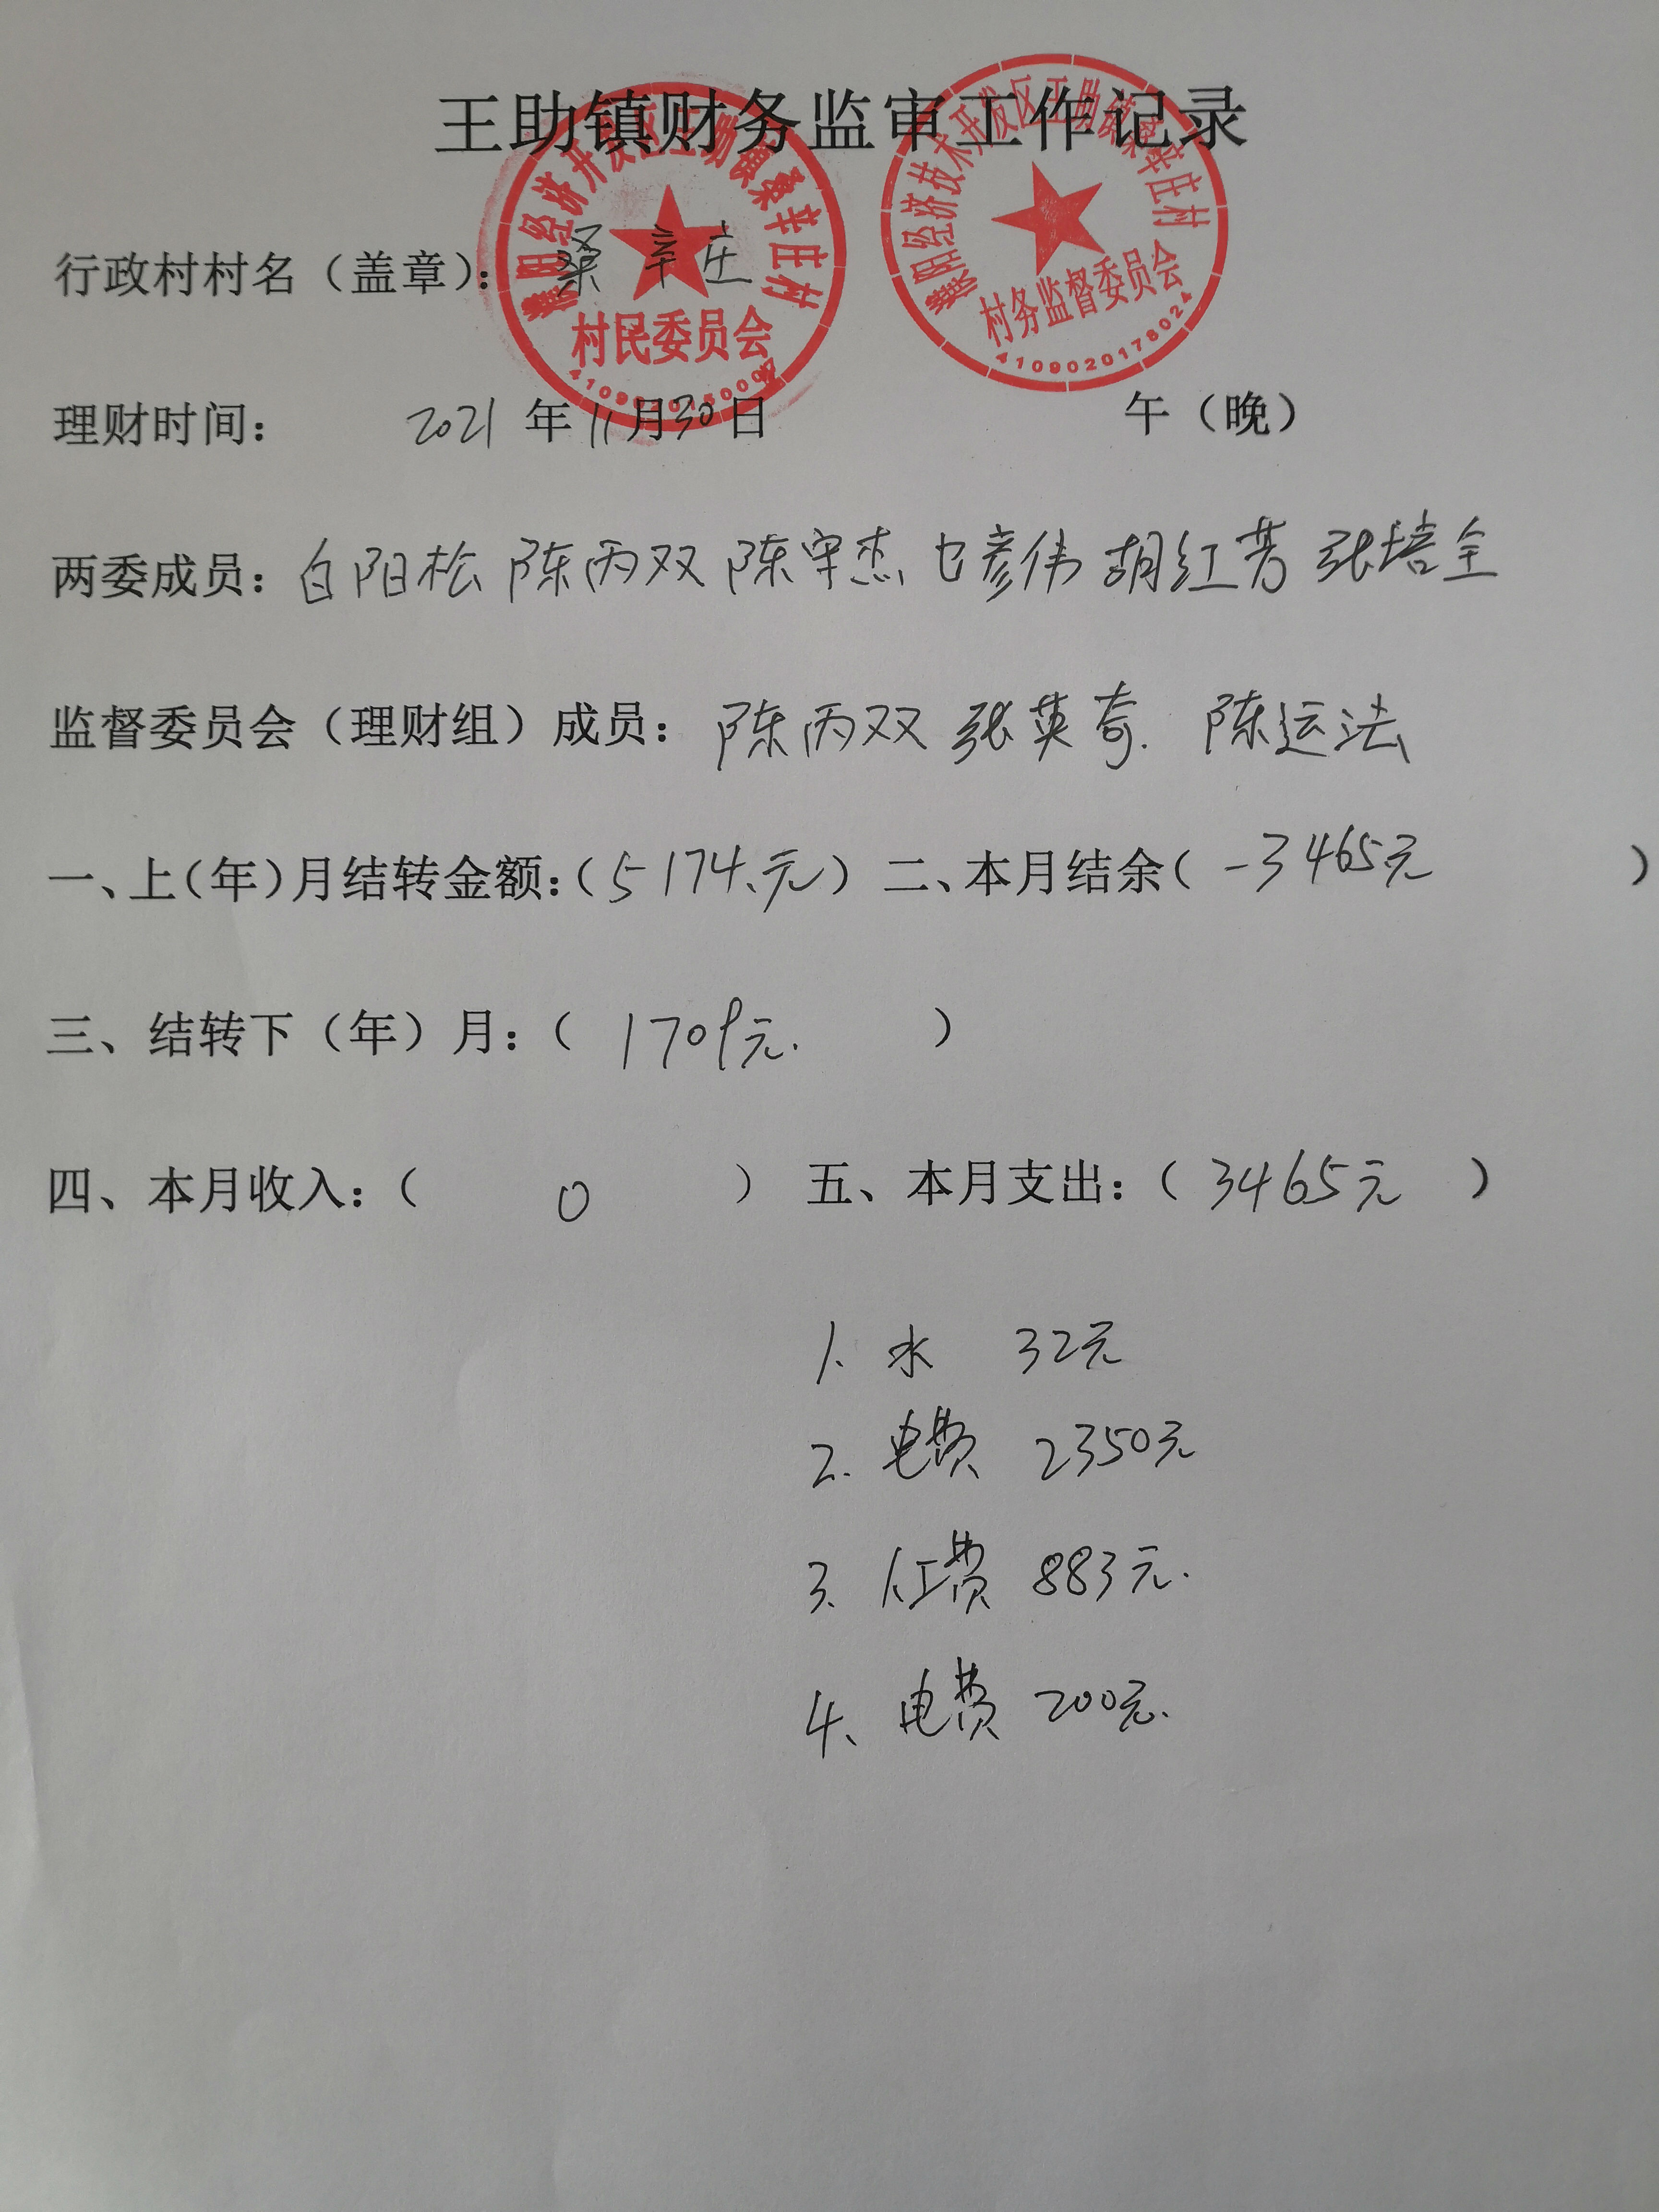 王助镇财务监审工作记录
行政村村名（盖章）：桑辛庄
濮阳经济开发区王助镇桑辛庄村
村民委员会
濮阳经济技术开发区王助镇桑辛庄村
村务监督委员会
4109020178024
理财时间： 2021年11月30日 午（晚）
两委成员：白阳松 陈丙双 陈守杰 彦伟 胡红芳 张培全
监督委员会（理财组）成员：陈丙双 张英奇. 陈运法
一、上（年）月结转金额：（5174.元）二、本月结余（-3465元 ）
三、结转下（年）月：（ 1709元. ）
四、本月收入：（ 0 ） 五、本月支出：（3465元 ）
1. 水 32元
2. 电费 2350元
3. 人工费 883元.
4、电费 200元.